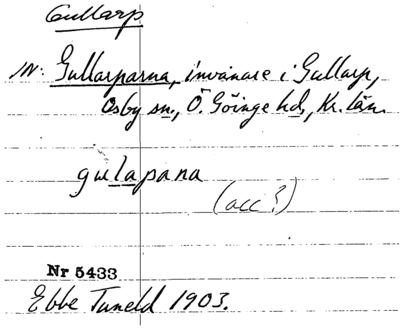 Gullarp
in: Gullarparna, invånare i Gullarp,
Osby sn., Ö. Göinge hd, Kr. län.
gulapana
(acc?)
Nr 5433
Ebbe Tuneld 1903.